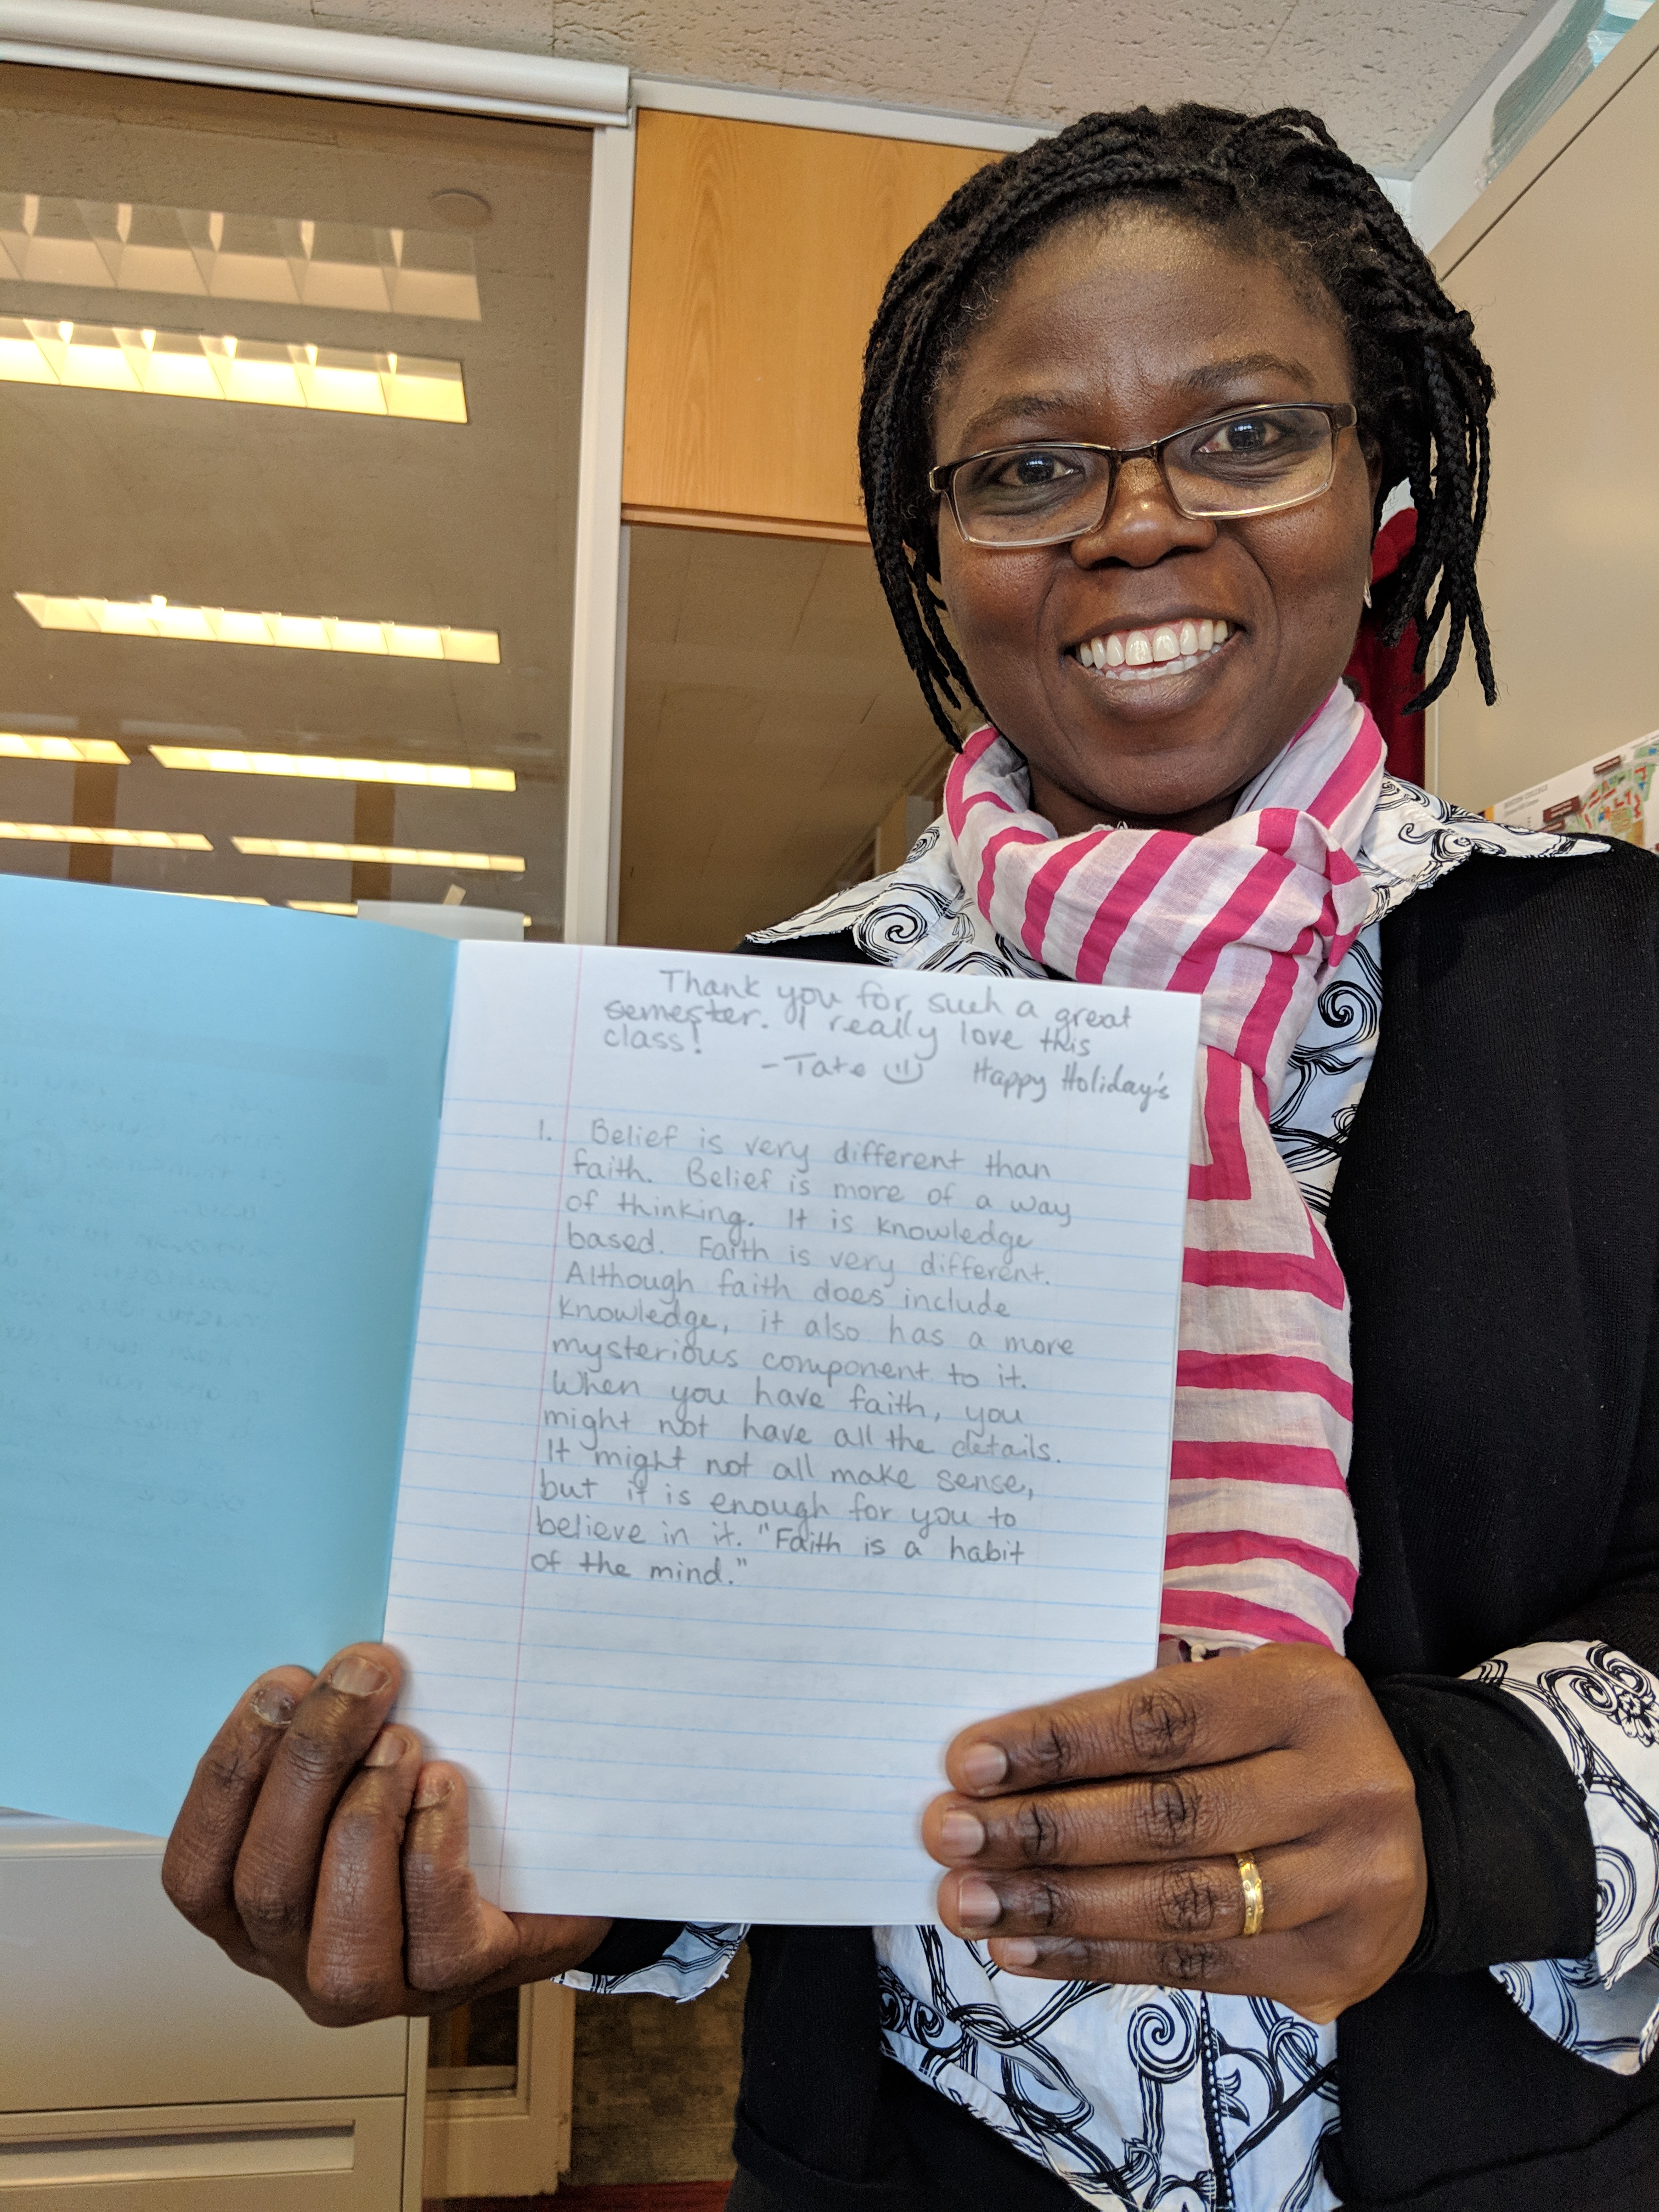 Thank you for such a great
semester. I really love this
class!
-Tate Happy Holiday's
1. Belief is very different than
faith. Belief is more of a way
of thinking. It is knowledge
based. Faith is very different.
Although faith does include
knowledge, it also has a more
mysterious component to it.
When you have faith, you
might not have all the details.
It might not all make sense,
but it is enough for you to
believe in it. "Faith is a habit
of the mind."